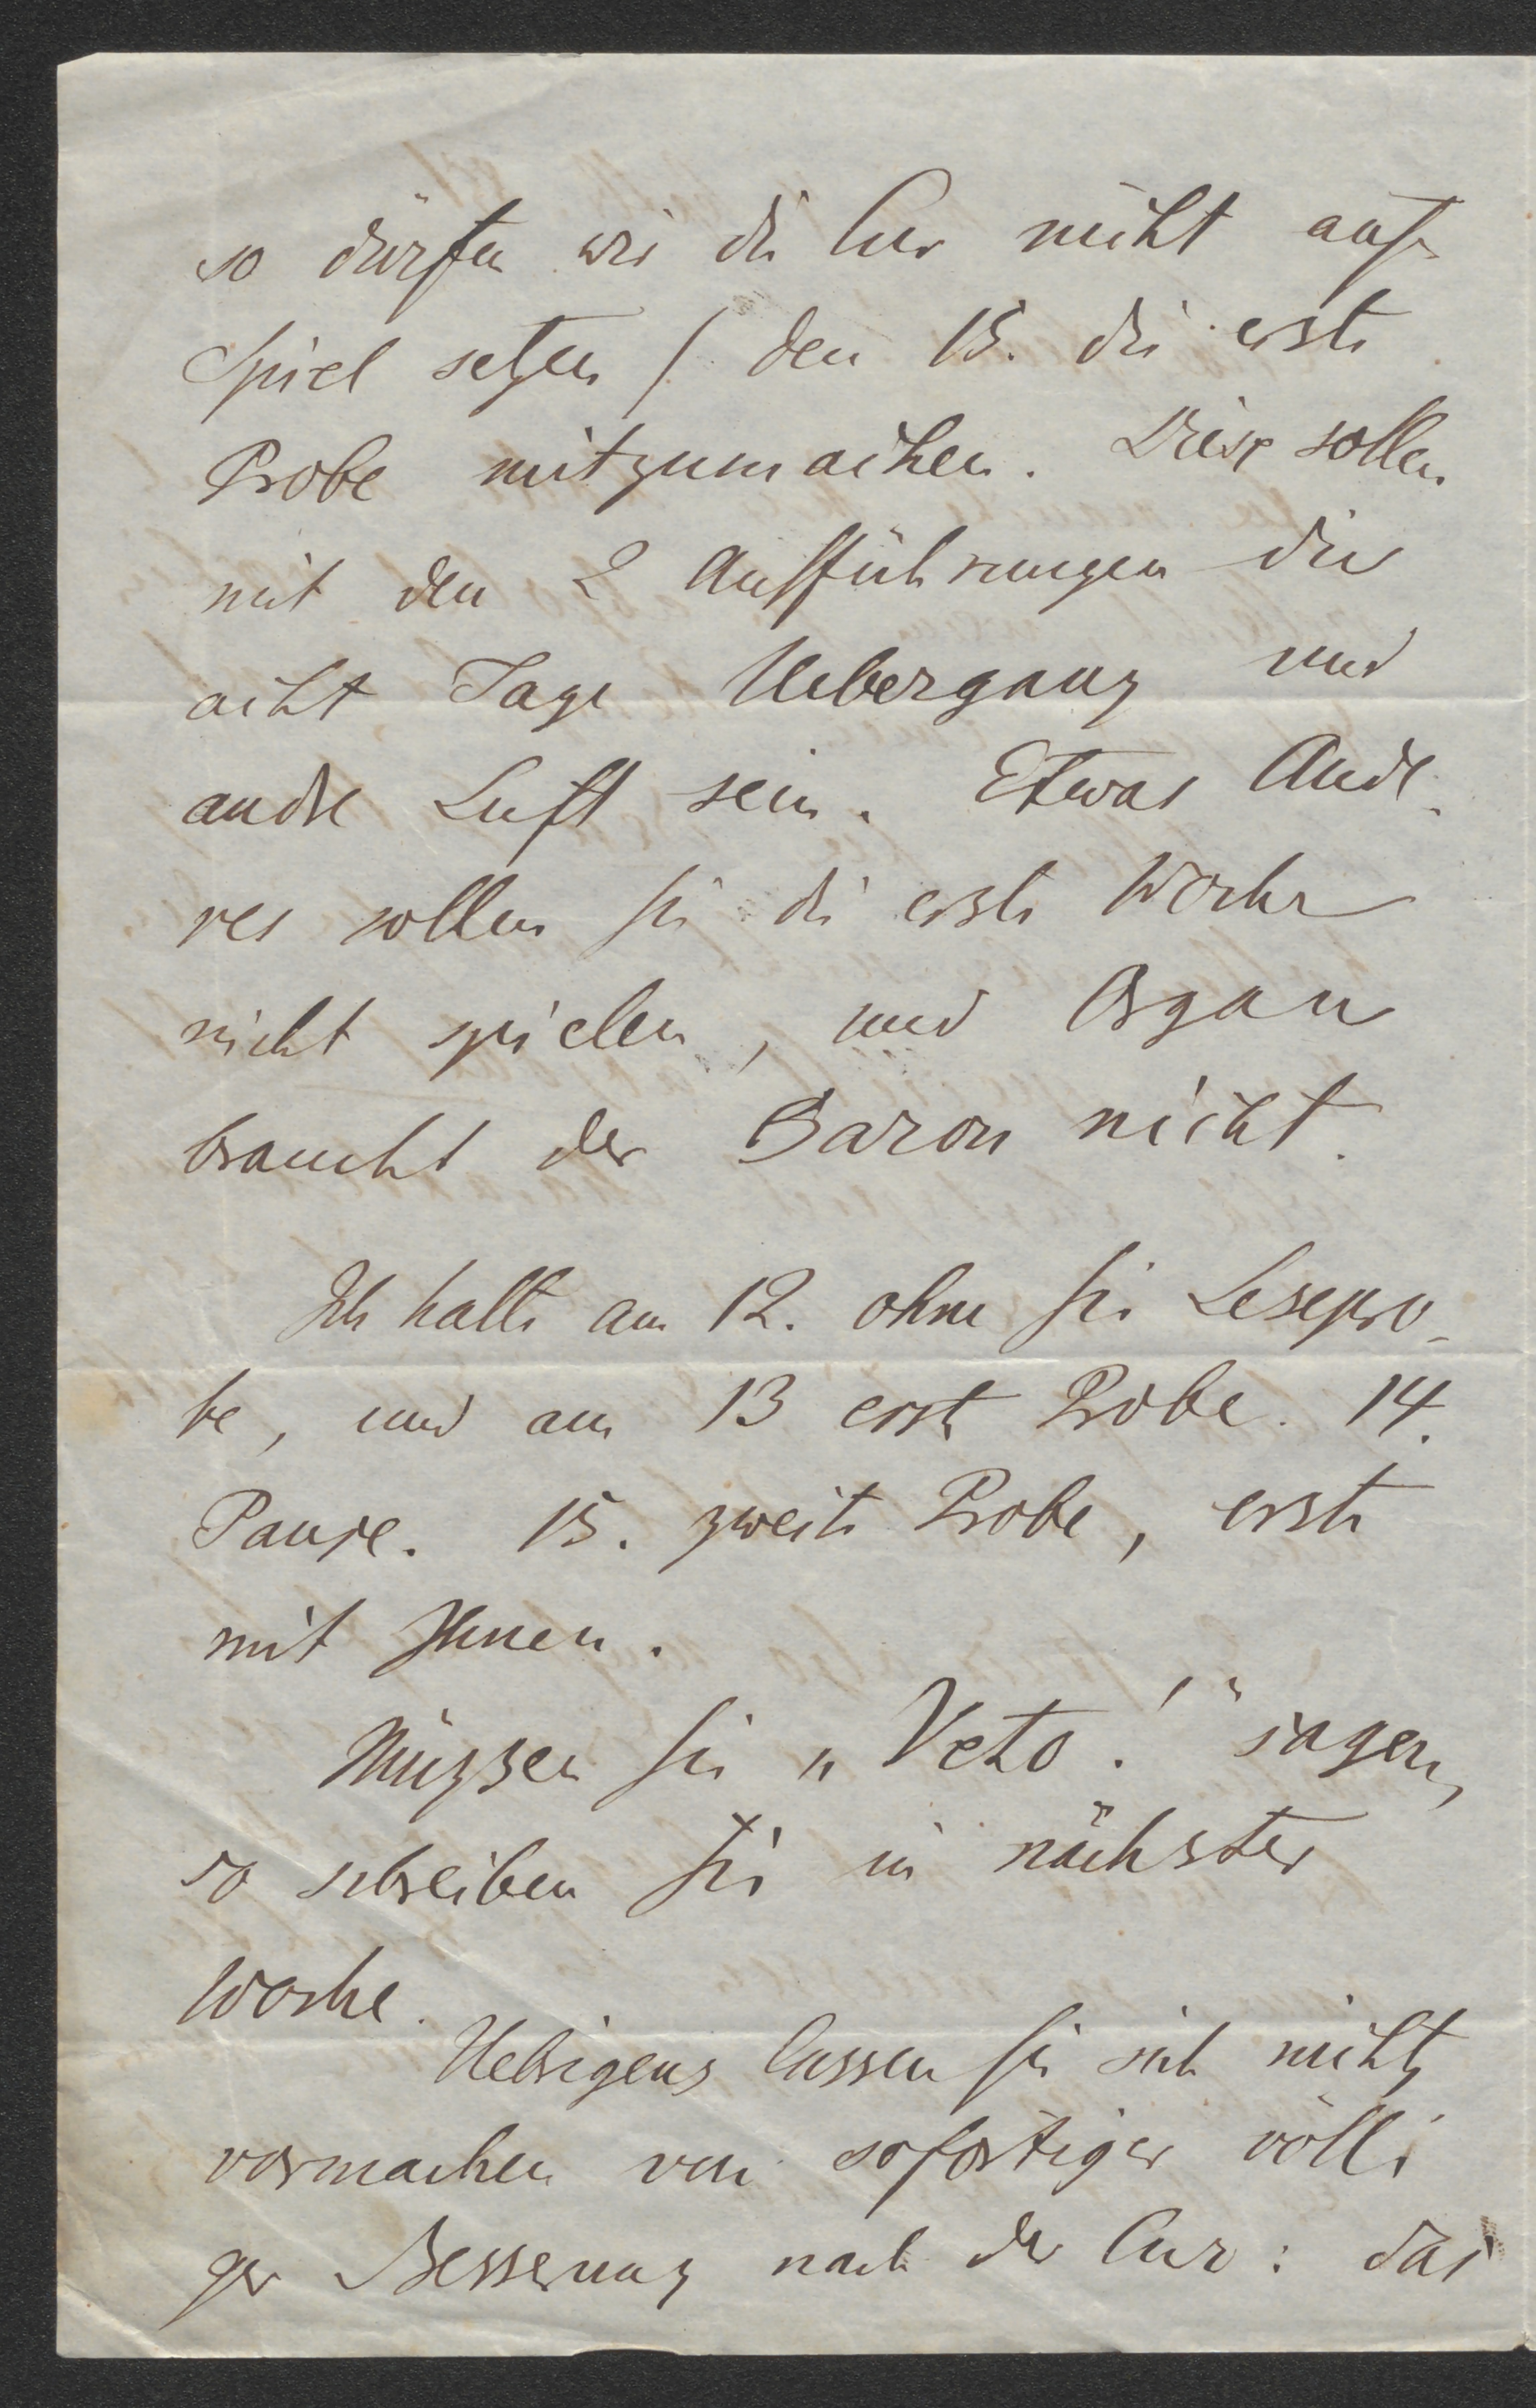 so dürfen wir die Cur nicht aufs
Spiel setzen / den 15. die erste
Probe mitzumachen. Diese sollen
mit den 2 Aufführungen die
acht Tage Uebergang und
andre Luft sein. Etwas Ande-
res sollen Sie die erste Woche
nicht spielen, und Organ
braucht der Baron nicht.
Ich halte am 12. ohne Sie Lesepro-
be, und am 13 erste Probe. 14.
Pause. 15. zweite Probe, erste
mit Ihnen.
Müßsen Sie „Veto!“ sagen,
so schreiben Sie in nächster
Woche.
Uebrigens lassen Sie sich nichts
vormachen von sofortiger völli
ger Besserung nach der Cur: das